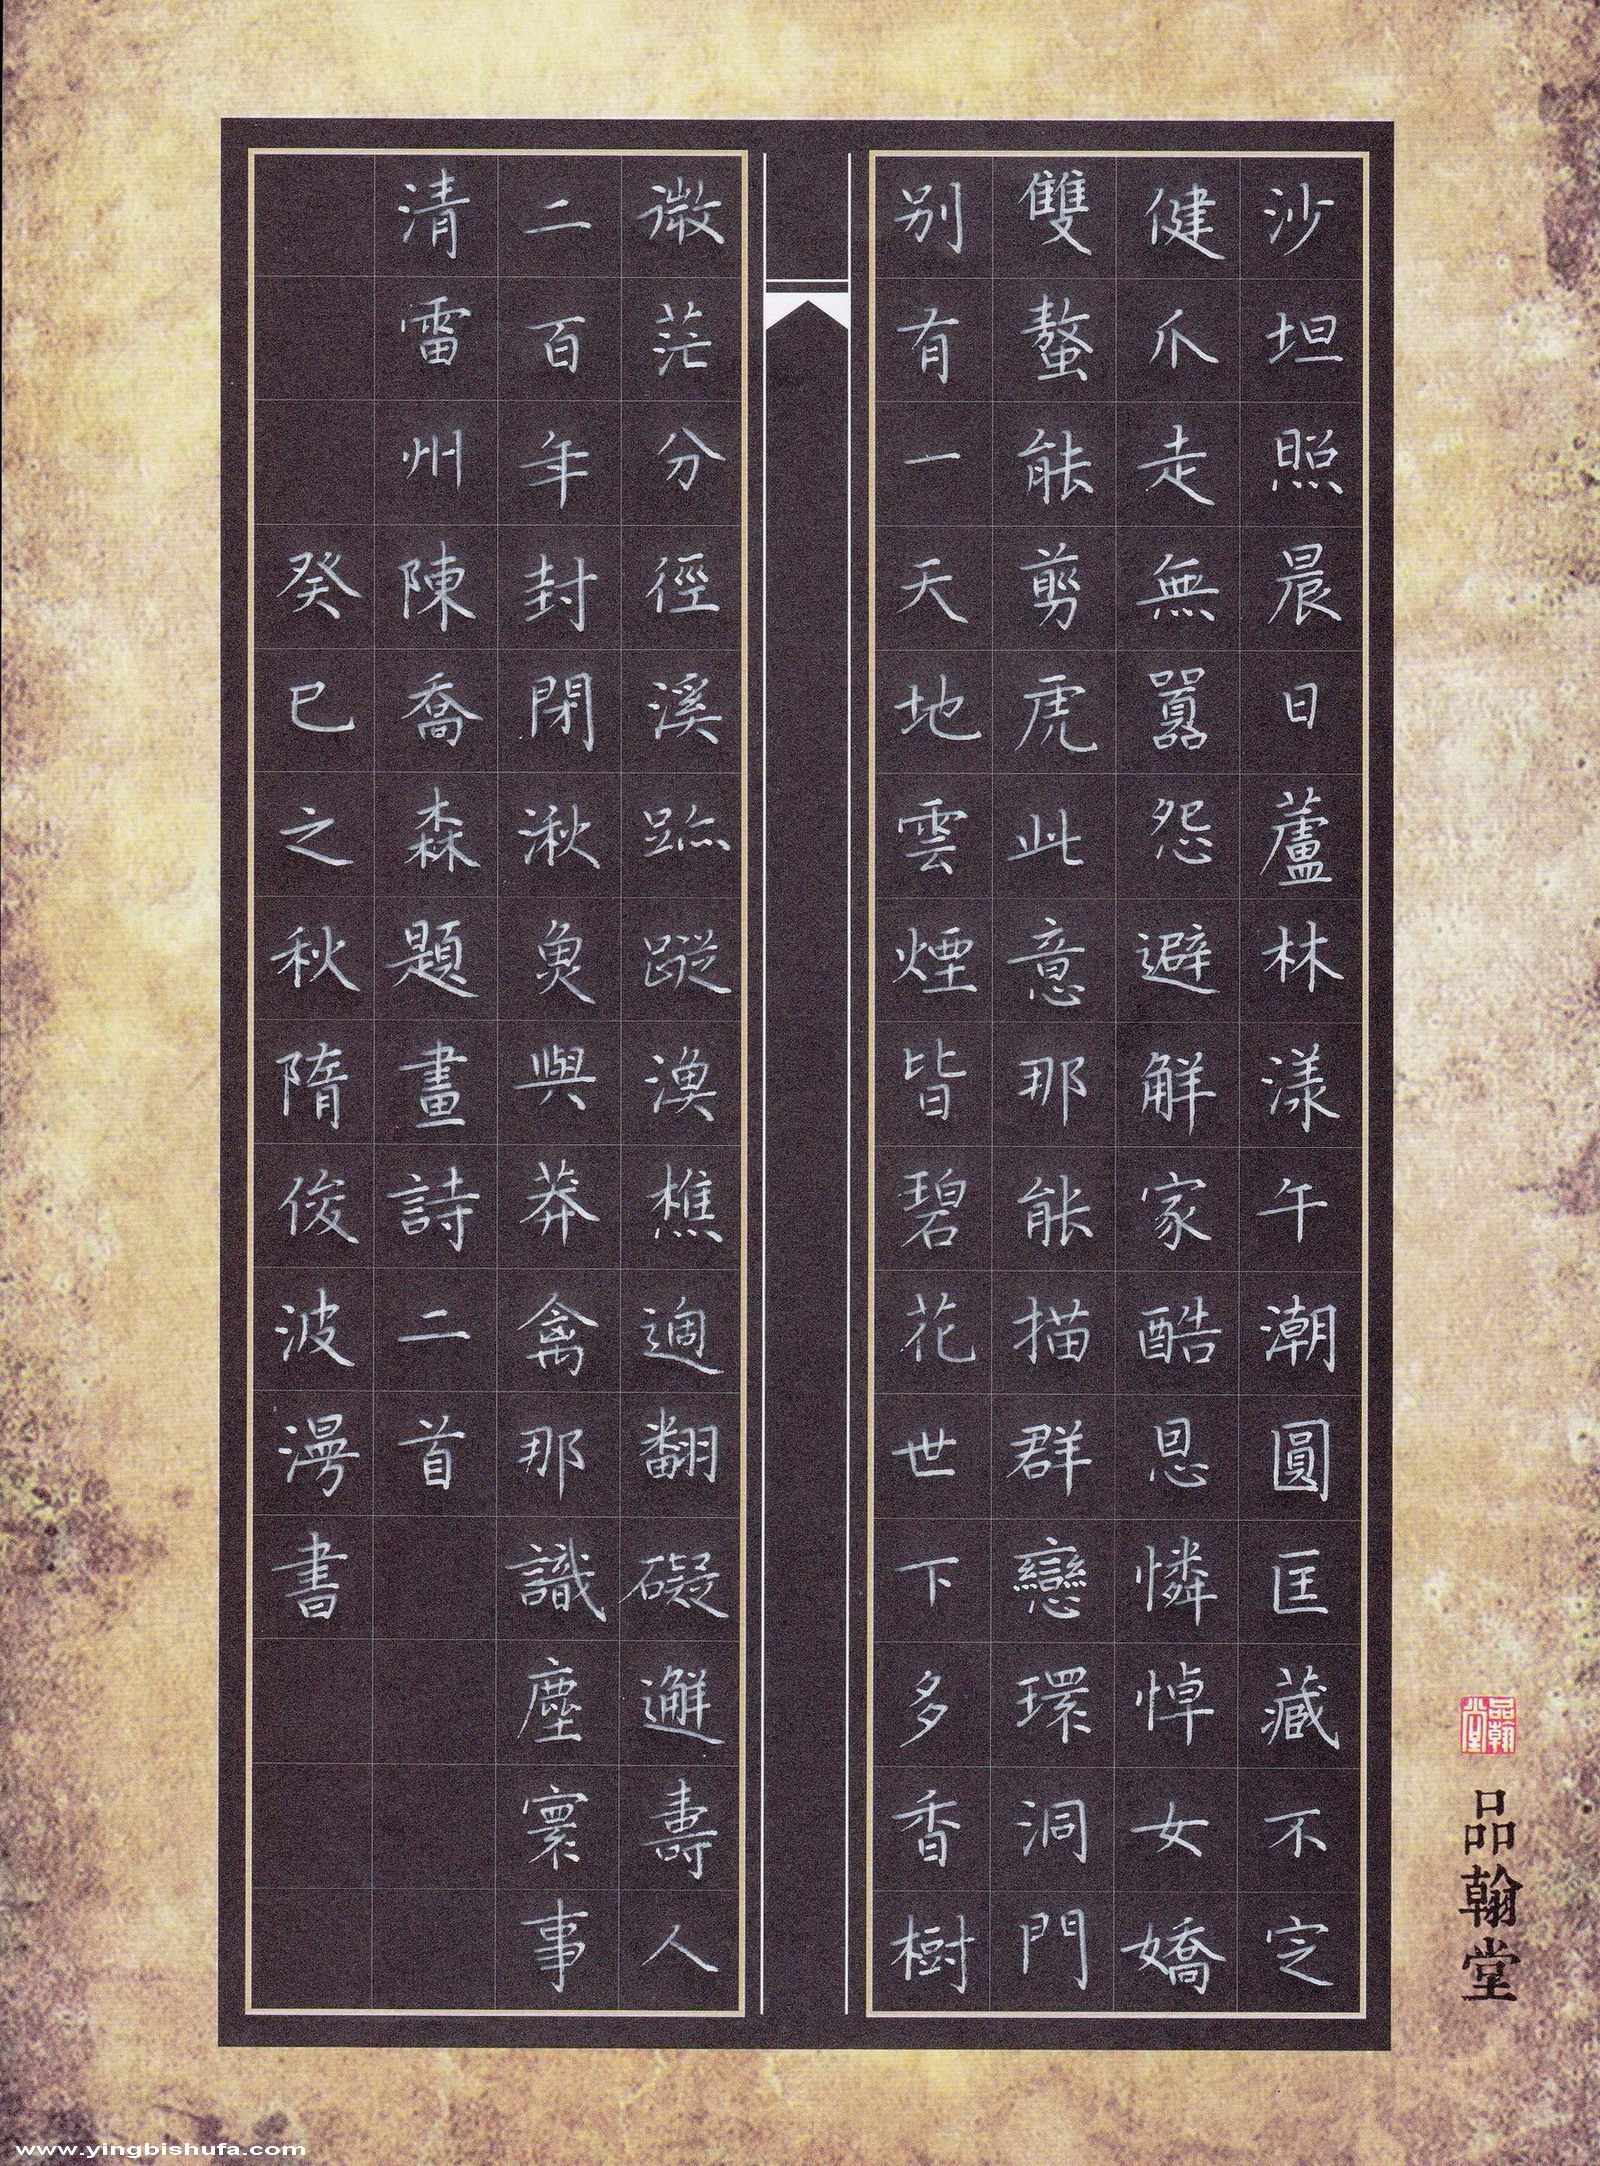 沙坦照晨日蘆林漾午潮圓匡藏不定
健爪走無囂怨避解家酷恩憐悼女嬌
雙螯能剪虎此意那能描群戀環洞門
别有一天地雲煙皆碧花世下多香樹
微茫分徑溪跡蹤漁樵逈翻礙邂壽人
二百年封閉湫魚與莽禽那識塵寰事
清雷州陳喬森題畫詩二首
癸巳之秋隋俊波漫書
品翰堂
品翰堂
www.yingbishufa.com